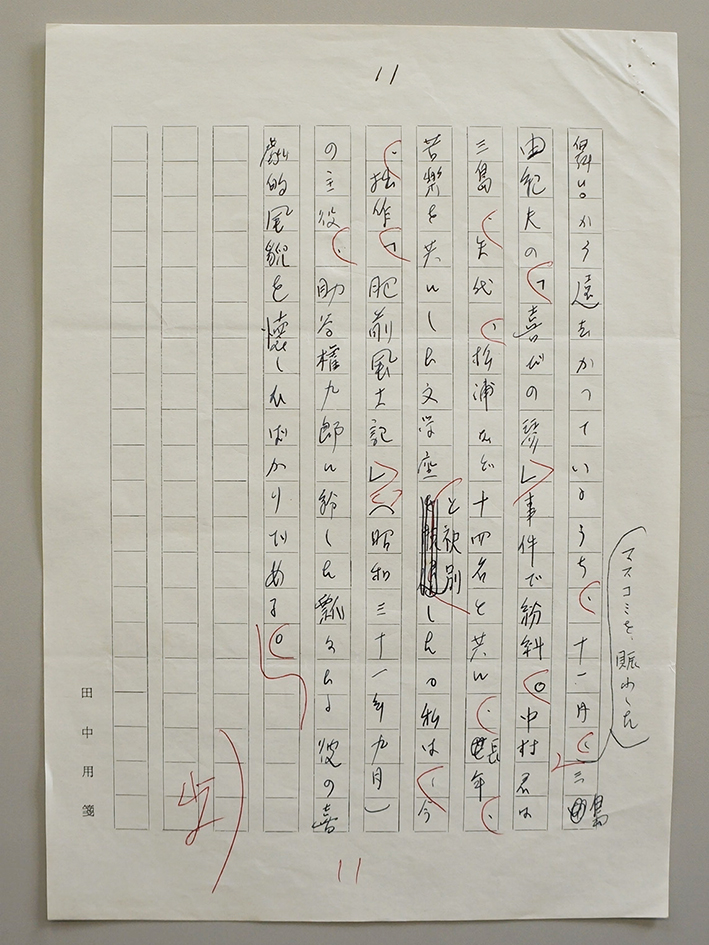 11
マスコミを賑わした
舞いから遠去かっているうち、十一月、三島
由紀夫の「喜びの琴」事件で紛糾。中村君は
三島、矢代、松浦など十四名と共に、長年、
苦楽を共にした文学座と袂別した。私は、今
、拙作「肥前風土記」(昭和三十一年九月)
の主役、助谷権九郎に紛した瓢々たる彼の喜
劇的風貌を懐しむばかりである。
田中用箋
11